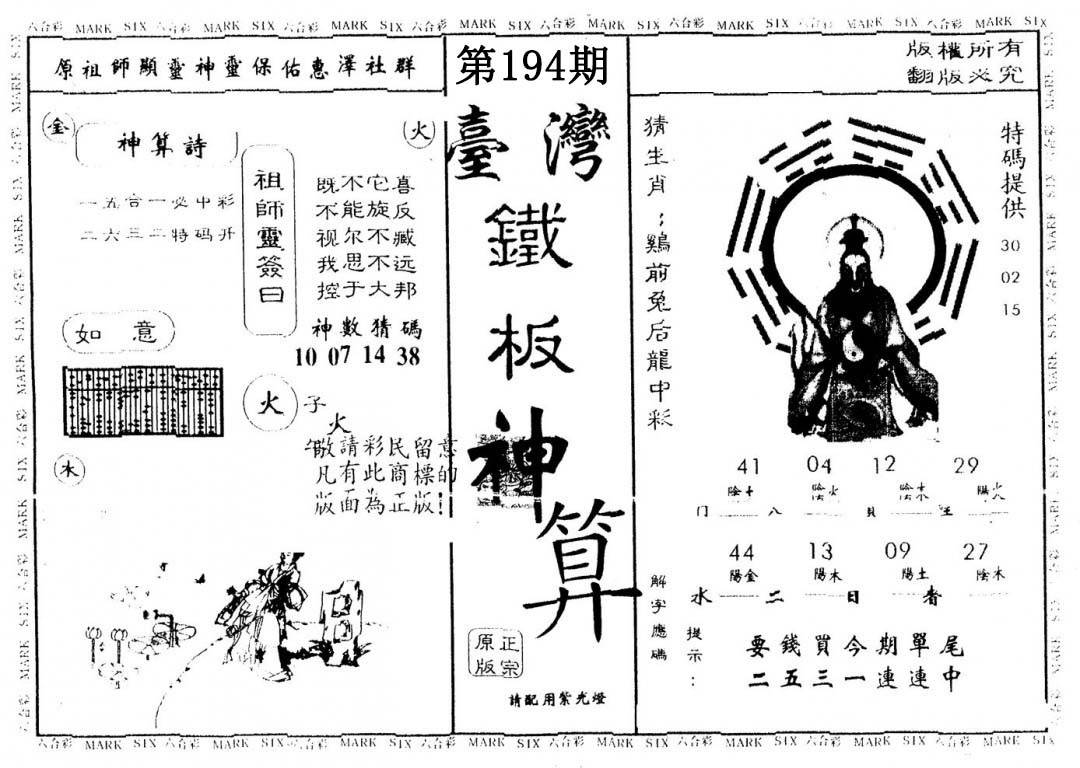 六合彩 MARK SIX 六合彩 MARK SIX 六合彩 MARK SIX 六合彩 MARK SIX 六合彩 MARK SIX 六合彩 MARK SIX 六合彩 MARK SIX 六合彩 MARK SIX
原祖師顯靈神靈保佑惠澤社群
第194期
版權所有
翻版必究
金
神算詩
火
一五合一必中彩
二六三二特码开
祖師靈簽曰
既不它喜
不能旋反
视尔不臧
我思不远
控于大邦
如意
神數猜碼
10 07 14 38
火
子
火
水
午敬請彩民留意
凡有此商標的
版面為正版!
臺灣
鐵
板
神
算
正宗
原版
請配用紫光燈
猜生肖:鷄前兔后龍中彩
特碼提供
30
02
15
41 04 12 29
陰土 陰火 陰木 陽火
门 八 貝 王
44 13 09 27
陽金 陽木 陽土 陰木
水 二 日 者
解字應碼
提示:
要錢買今期單尾
二五三一連連中
六合彩 MARK SIX 六合彩 MARK SIX 六合彩 MARK SIX 六合彩 MARK SIX 六合彩 MARK SIX 六合彩 MARK SIX 六合彩 MARK SIX 六合彩 MARK SIX